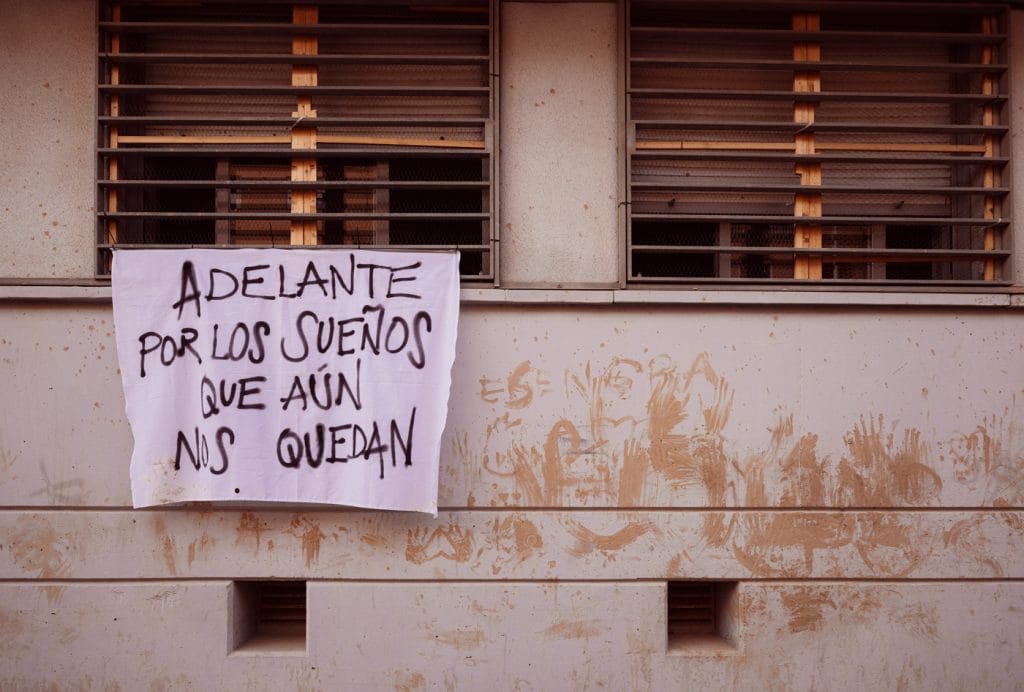 ADELANTE
POR LOS SUEÑOS
QUE AÚN
NOS QUEDAN